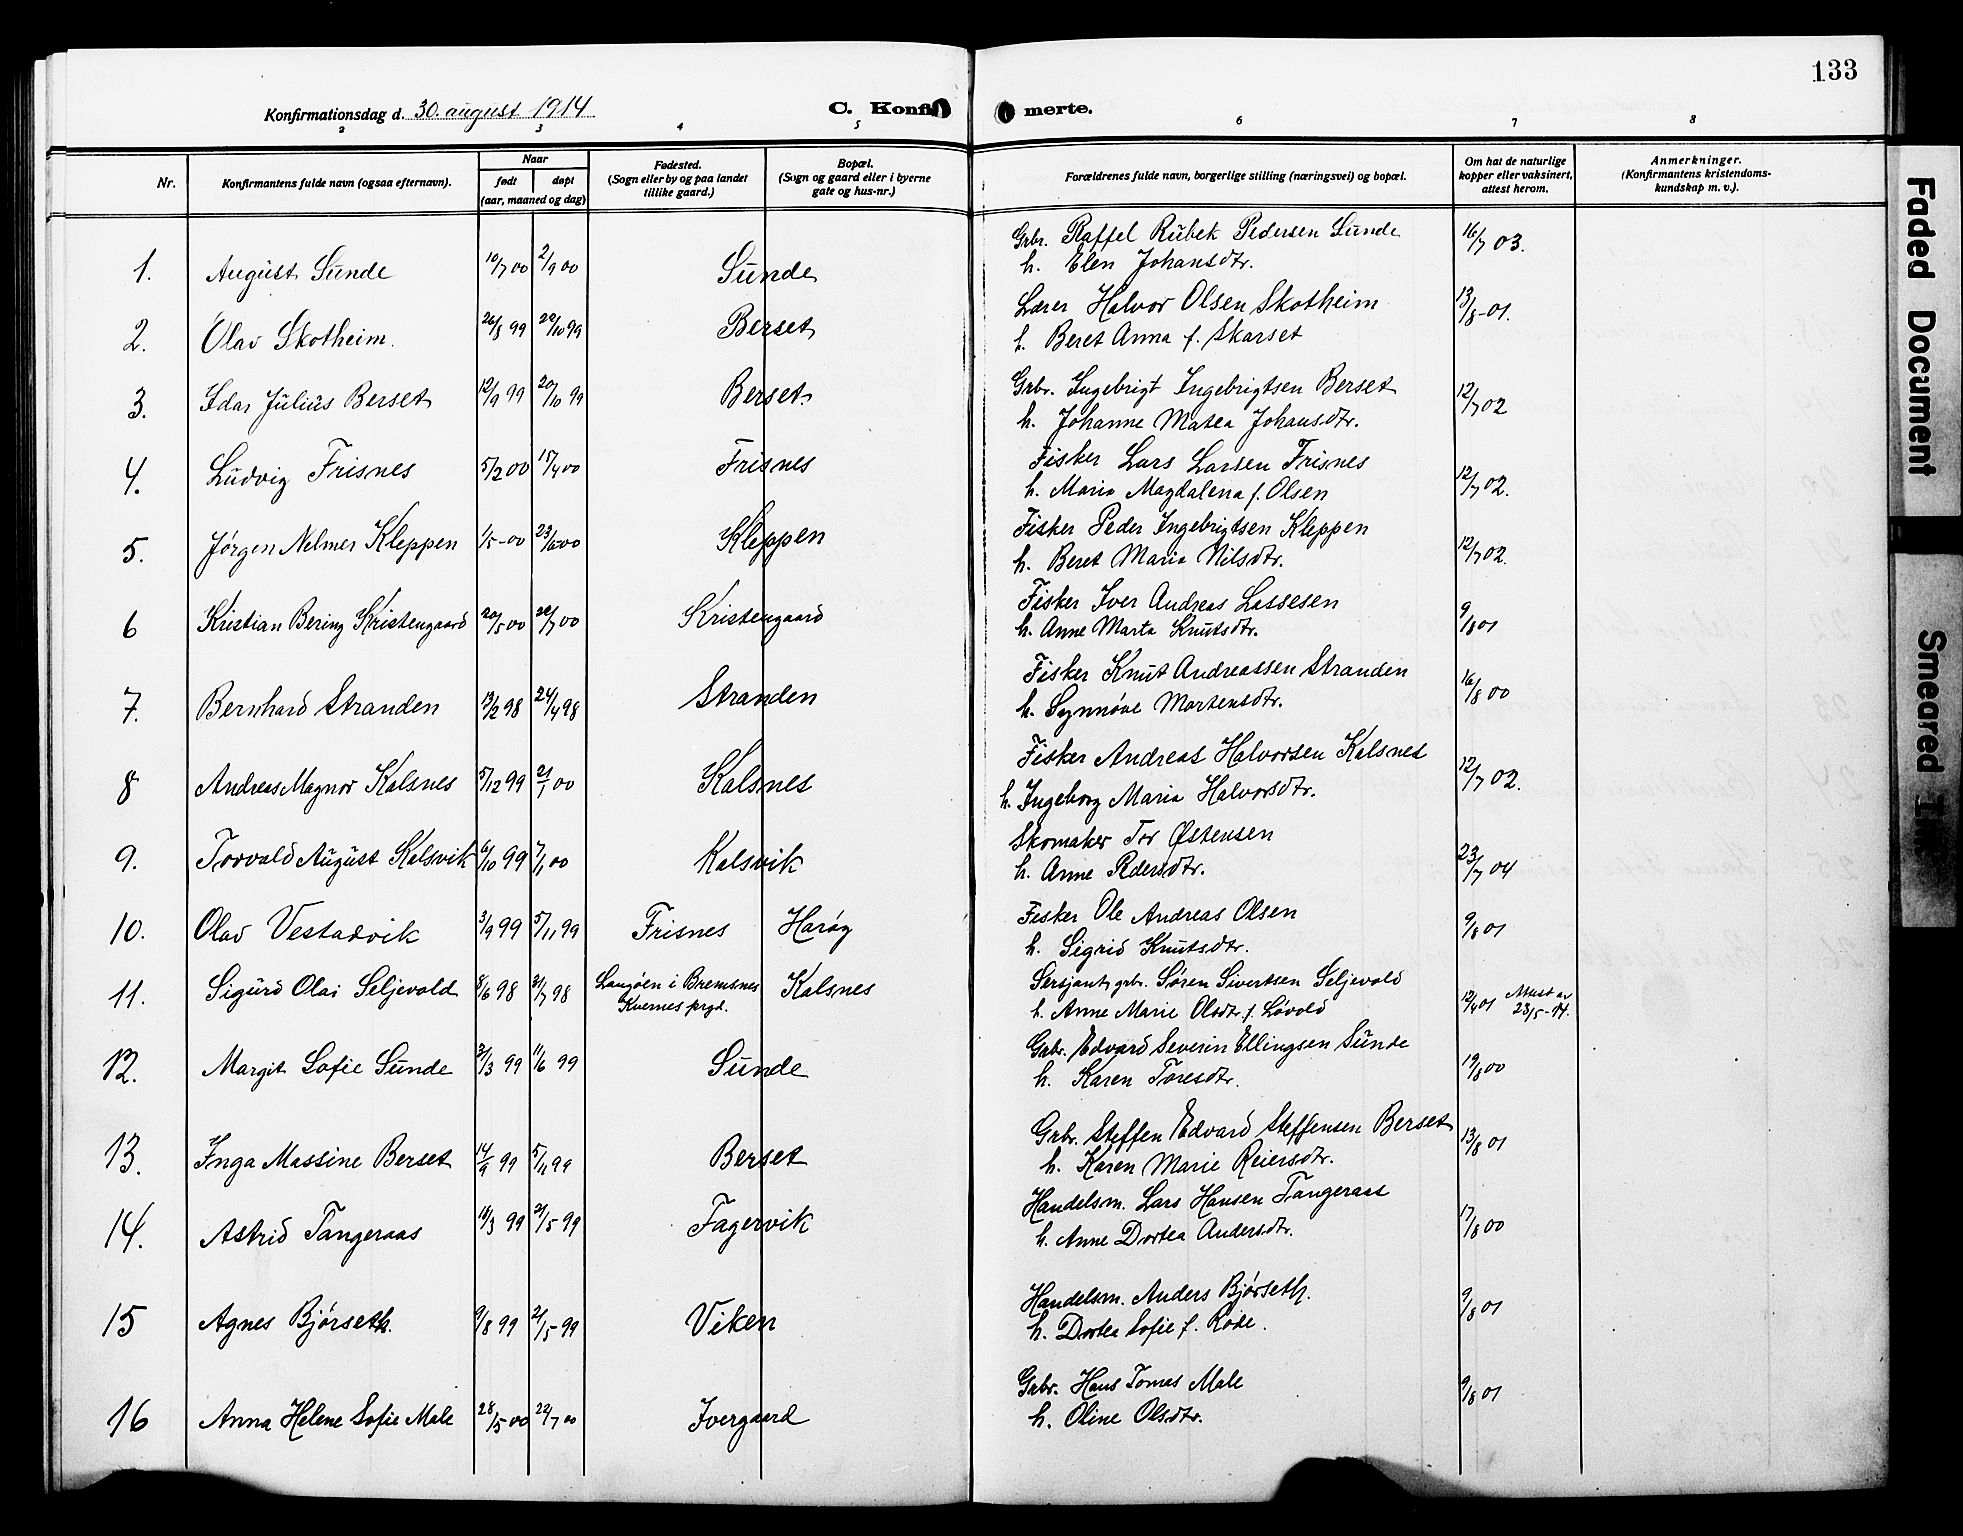 133
Konfirmationsdag d. 30. august 1914
C. Konfi merte.
2 3 4 5 6 7 8
Nr.
Konfirmantens fulde navn (ogsaa efternavn).
Naar
født døpt
(aar, maaned og dag)
Fødested.
(Sogn eller by og paa landet
tillike gaard.)
Bopæl.
(Sogn og gaard eller i byerne
gate og hus-nr.)
Forældrenes fulde navn, borgerlige stilling (næringsvei) og bopæl.
Om hat de naturlige
kopper eller vaksinert,
attest herom.
Anmerkninger.
(Konfirmantens kristendoms-
kundskap m. v.).
1. August Sunde 10/7 00 2/9 00 Sunde
Grbr. Raffel Rubek Pedersen Sunde 16/7 03.
h. Elen Johansdtr.
2. Olav Skotheim. 26/8 99 22/10 99 Berset
Lærer Halvor Olsen Skotheim 13/8-01.
h. Beret Anna f. Skarset
3. Idar Julius Berset 12/9 99 20/10 99 Berset.
Grbr. Ingebrigt Ingebrigtsen Berset 12/7 02
h. Johanne Matea Johansdtr.
4. Ludvig Frisnes 5/2 00 15/4 00 Frisnes
Fisker Lars Larsen Frisnes 12/7 02.
h. Maria Magdalena f. Olsen
5. Jørgen Nelmer Kleppen 1/5-00 23/6 00 Kleppen
Fisker Peder Ingebrigtsen Kleppen 12/7 02.
h. Beret Maria Nilsdtr.
6 Kristian Bering Kristengaard 20/5 00 22/7 00 Kristengaard
Fisker Iver Andreas Lassesen 9/8 01
h. Anne Marta Knutsdtr.
7. Bernhard Stranden 13/2 98 24/4 98 Stranden
Fisker Knut Andreassen Stranden 16/8 00
h. Synnøve Mortensdtr.
8 Andreas Magnor Kalsnes 5/12 99 21/1 00 Kalsnes
Fisker Andreas Halvorsen Kalsnes 12/7 02.
h. Ingeborg Maria Halvorsdtr.
9. Torvald August Kalsvik 6/10 99 7/1 00 Kalsvik
Skomaker Tor Østensen 23/7 04
h. Anne Pedersdtr.
10. Olav Vestadvik 3/9 99 5/11 99 Frisnes Harøy
Fisker Ole Andreas Olsen 9/8 01
h. Sigrid Knutsdtr.
11. Sigurd Olai Seljevold 8/6 98 31/7 98 Langøen i Bremsnes Kalsnes
Kvernes prgd.
Sersjant, grbr. Søren Sivertsen Seljevold
h. Anne Marie Olsdtr. f. Løvold 12/4 01 Attest av
23/5-14.
12. Margit Sofie Sunde 31/3 99 11/6 99 Sunde
Grbr. Edvard Severin Ellingsen Sunde 19/8 00
h. Karen Toresdtr.
13. Inga Massine Berset 14/9 99 5/11 99 Berset
Grbr. Steffen Edvard Steffensen Berset 13/8 01
h. Karen Marie Reiersdtr.
14. Astrid Tangeraas 16/3 99 21/5 99 Fagervik
Handelsm. Lars Hansen Tangeraas 17/8 00
h. Anne Dortea Andersdtr.
15 Agnes Bjørseth. 9/8 99 21/5-99 Viken
Handelsm. Anders Bjørseth. 9/8 01
h. Dortea Sofie f. Røde.
16 Anna Helene Sofie Male 28/5-00 22/7 00 Ivergaard
Grbr. Hans Tomas Male 9/8 01
h. Oline Olsdtr.
Faded Document
Smeared Ink